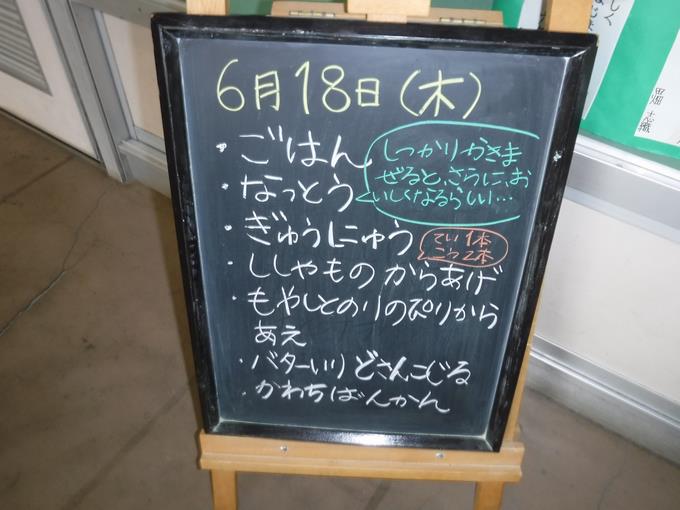 6月18日(木)
・ごはん
・なっとう
しっかりかきま
ぜると、さらに、お
いしくなるらしい…
・ぎゅうにゅう
てい1本
こう2本
・ししゃものからあげ
・もやしとのりのぴりから
あえ
・バターいりどさんこじる
・かわちばんかん